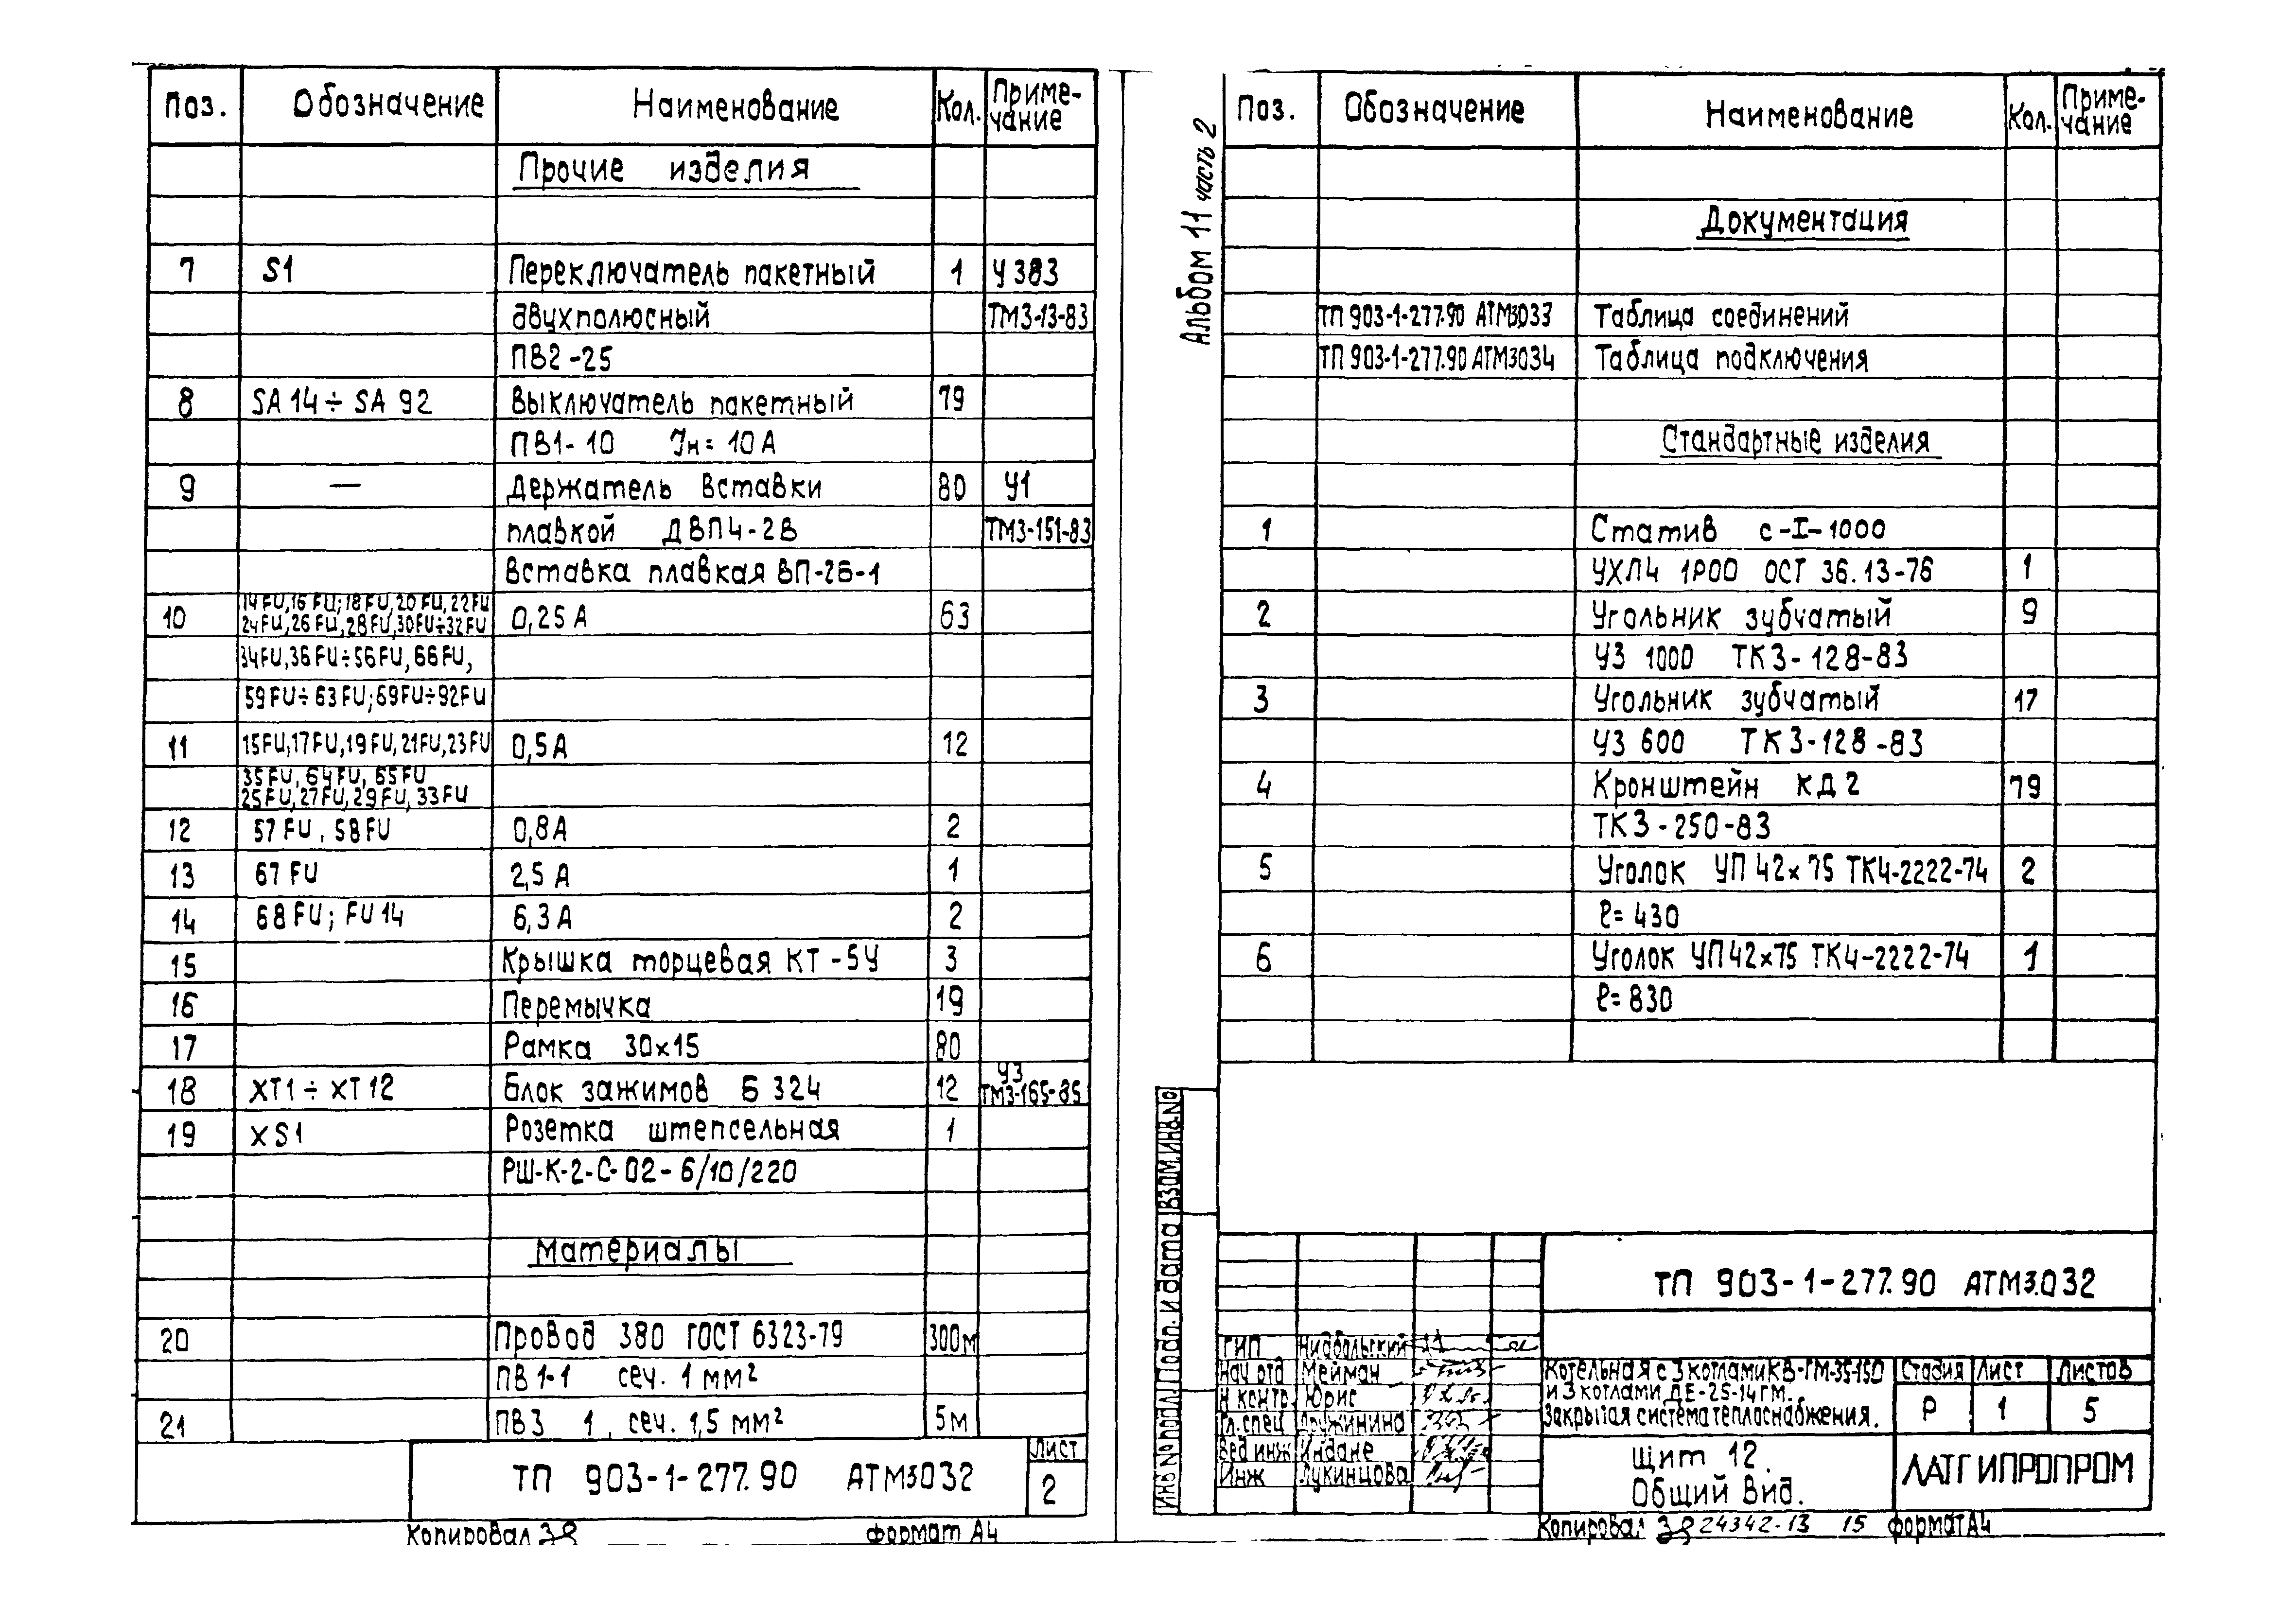 Поз. Обозначение Наименование Кол. Приме-чание
Прочие изделия
7 S1 Переключатель пакетный 1 У 383
двухполюсный ТМ3-13-83
ПВ2-25
8 SA 14 ÷ SA 92 Выключатель пакетный 79
ПВ1-10 Jн = 10 А
9 — Держатель вставки 80 У1
плавкой ДВП4-2В ТМ3-151-83
Вставка плавкая ВП-2Б-1
14 FU, 16 FU; 18 FU, 20 FU, 22 FU
10 24 FU, 26 FU, 28 FU, 30 FU÷32 FU 0,25 А 63
34 FU, 36 FU÷56 FU, 66 FU,
59 FU÷63 FU; 69 FU÷92 FU
11 15 FU, 17 FU, 19 FU, 21 FU, 23 FU 0,5 А 12
35 FU, 64 FU, 65 FU
25 FU, 27 FU, 29 FU, 33 FU
12 57 FU, 58 FU 0,8 А 2
13 67 FU 2,5 А 1
14 68 FU; FU 14 6,3 А 2
15 Крышка торцевая КТ-5У 3
16 Перемычка 19
17 Рамка 30х15 80
18 ХТ1 ÷ ХТ12 Блок зажимов Б 324 12 У3 ТМ3-165-85
19 XS1 Розетка штепсельная 1
РШ-К-2-С-02-6/10/220
Материалы
20 Провод 380 ГОСТ 6323-79 300м
ПВ 1-1 сеч. 1 мм²
21 ПВ3 1 сеч. 1,5 мм² 5м
ТП 903-1-277.90 АТМ3032 Лист 2
Копировал формат А4
Альбом 11 часть 2
Поз. Обозначение Наименование Кол. Приме-чание
Документация
ТП 903-1-277.90 АТМ3033 Таблица соединений
ТП 903-1-277.90 АТМ3034 Таблица подключения
Стандартные изделия
1 Статив с-I-1000
УХЛ4 1Р00 ОСТ 36.13-76 1
2 Угольник зубчатый 9
УЗ 1000 ТК3-128-83
3 Угольник зубчатый 17
УЗ 600 ТК3-128-83
4 Кронштейн КД2 79
ТК3-250-83
5 Уголок УП 42х75 ТК4-2222-74 2
ℓ= 430
6 Уголок УП42х75 ТК4-2222-74 1
ℓ= 830
Инв № подл. Подп. и дата Взам. инв. №
ТП 903-1-277.90 АТМ3.032
ГИП Нидбальский
Нач отд Мейман
Н контр. Юрис
Гл. спец Дружинина
Вед инж Индане
Инж Лукинцова
Котельная с 3 котлами КВ-ГМ-35-150
и 3 котлами ДЕ-25-14ГМ.
Закрытая система теплоснабжения.
Стадия Лист Листов
Р 1 5
Щит 12.
Общий вид.
ЛАТГИПРОПРОМ
Копировал 24342-13 15 формат А4